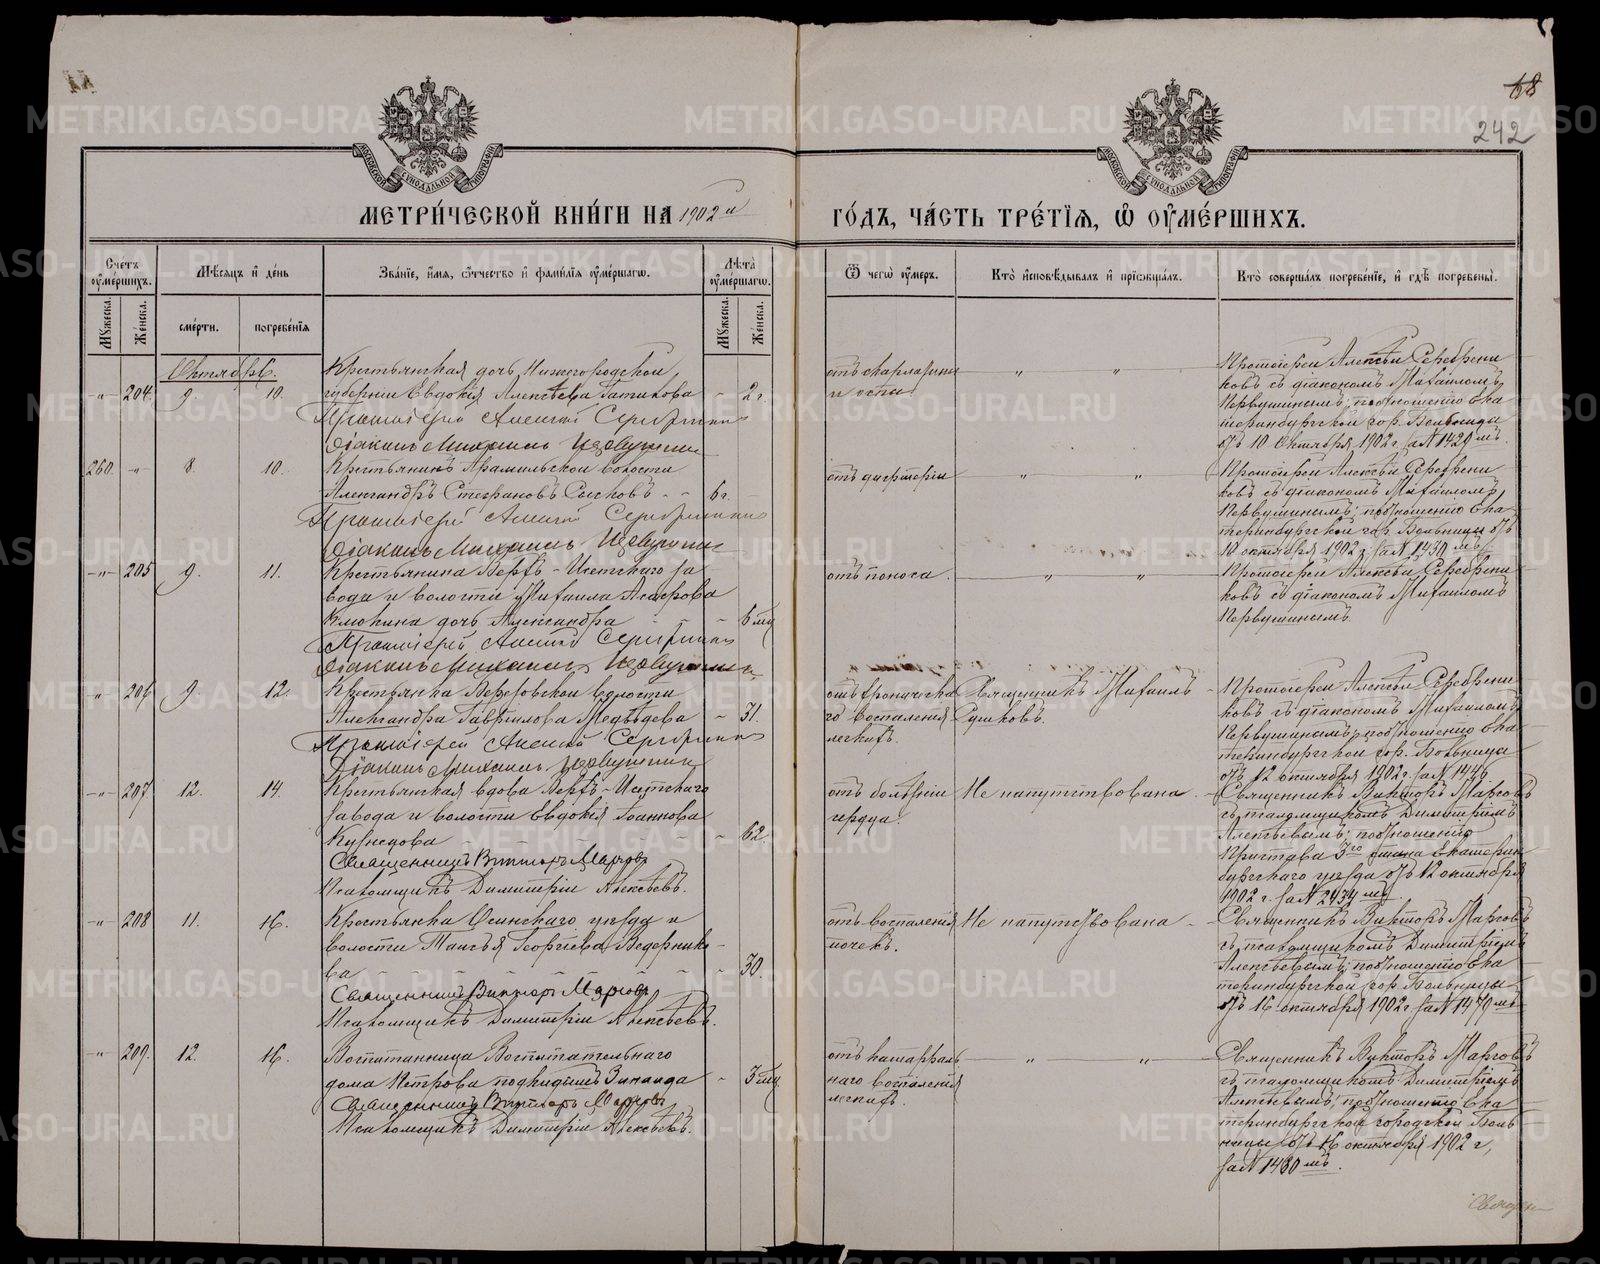 68
242
МЕТРИ́ЧЕСКОЙ КНИ́ГИ НА 1902 й ГО́ДЪ, ЧА́СТЬ ТРЕ́ТІЯ, Ѽ ОУМЕ́РШИХЪ.
Сче́тъ оуме́ршихъ.
Мꙋ́жеска.
Же́нска.
Мѣ́сяцъ и де́нь
сме́рти.
погребе́нія
Зва́ніе, и́мя, о́тчество и фами́лія оуме́ршагѡ.
Лѣ́та оуме́ршагѡ.
Мꙋ́жеска.
Же́нска.
Ѿ чегѡ̀ оу́меръ.
Кто̀ и́сповѣ́дывалъ и прїѡбща́лъ.
Кто̀ соверша́лъ погребе́ніе, и гдѣ̀ погребены̀.
Октябрь.
-"- 204. 9. 10.
Крестьянская дочь Нижегородской
губерніи Евдокія Алексѣева - 2 г.
Протоіерей Алексій Серебренниковъ
Діаконъ Михаилъ Первушинъ
отъ скарлатины
и оспы.
" "
Протоіерей Алексѣй Серебрени
ковъ съ діакономъ Михаиломъ
Первушинымъ; по отношенію Ека
теринбургской гор. Больницы
отъ 10 Октября 1902 г. за N 1429 мъ.
260. -"- 8. 10.
Крестьянинъ Арамильской волости
Александръ Стефановъ Сысковъ - - 6 г. -
Протоіерей Алексій Серебренниковъ
Діаконъ Михаилъ Первушинъ
отъ дифтеріи
" "
Протоіерей Алексѣй Серебрени
ковъ съ діакономъ Михаиломъ
Первушинымъ; по отношенію Ека
теринбургской гор. Больницы отъ
10 октября 1902 г. за N 1430 мъ.
-"- 205 9. 11.
Крестьянина Верхъ-Исетскаго за
вода и волости Михаила
дочь Александра - - - 6 мц
Протоіерей Алексій Серебренниковъ
Діаконъ Михаилъ Первушинъ
отъ поноса.
" "
Протоіерей Алексѣй Серебрени
ковъ съ діакономъ Михаиломъ
Первушинымъ.
" 206 9. 12.
Крестьянка волости
Александра Гаврилова Медвѣдева - 31.
Протоіерей Алексій Серебренниковъ
Діаконъ Михаилъ Первушинъ
отъ хроническа
го воспаленія
легкихъ.
Священникъ Михаилъ
Сушковъ.
Протоіерей Алексѣй Серебрени
ковъ съ діакономъ Михаиломъ
Первушинымъ по отношенію Ека
теринбургской гор. Больницы
отъ 12 октября 1902 г. за N 1446
-"- 207 12. 14.
Крестьянская вдова Верхъ-Исетскаго
завода и волости Евдокія Іоаннова
Кузнецова - 62.
Священникъ Викторъ
Псаломщикъ Димитрій Алексѣевъ.
отъ болѣзни
сердца.
Не напутствована.
Священникъ Викторъ
съ псаломщикомъ Димитріемъ
Алексѣевымъ; по отношенію
Пристава 3го стана Екатерин
бургскаго уѣзда отъ 12 октября
1902 г. за N 2434 мъ.
" 208 11. 16.
Крестьянка Осинскаго уѣзда и
волости Таисья Георгіева Ведернико
ва - - - - - - - 30.
Священникъ Викторъ
Псаломщикъ Димитрій Алексѣевъ.
отъ воспаленія
почекъ.
Не напутствована -
Священникъ Викторъ
съ псаломщикомъ Димитріемъ
Алексѣевымъ; по отношенію Ека
теринбургской гор. Больницы
отъ 16 октября 1902 г. за N 1470 мъ
-"- 209. 12. 16.
Воспитанница Воспитательнаго
дома Петрова подкидышъ Зинаида - 3 мц
Священникъ Викторъ
Псаломщикъ Димитрій Алексѣевъ.
отъ катарраль
наго воспаленія
легкихъ.
" "
Священникъ Викторъ
съ псаломщикомъ Димитріемъ
Алексѣевымъ; по отношенію Ека
теринбургской городской Боль
ницы отъ 16 октября 1902 г,
за N 1480 мъ.
METRIKI.GASO-URAL.RU